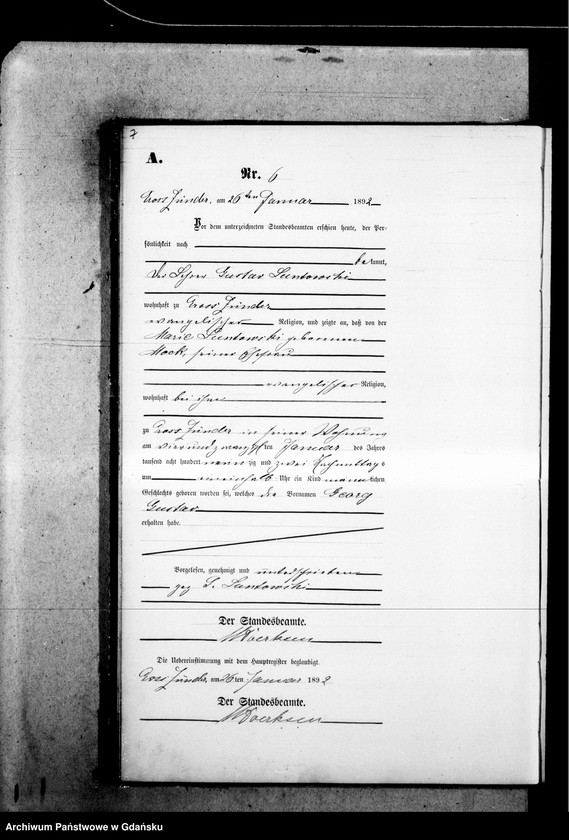 7
A.
Nr. 6
Gross Zünder, am 26ten Januar 1892
Vor dem unterzeichneten Standesbeamten erschien heute, der Per-
sönlichkeit nach
bekannt,
der Lehrer Gustav Suntowski
wohnhaft zu Gross Zünder
evangelischer Religion, und zeigte an, daß von der
Marie Suntowski geborenen
Mock, seiner Ehefrau
evangelischer Religion,
wohnhaft bei ihm
zu Gross Zünder in seiner Wohnung
am vierundzwanzigsten Januar des Jahres
tausend acht hundert neunzig und zwei Nachmittags
um Uhr ein Kind männlichen
Geschlechts geboren worden sei, welches die Vornamen Georg
Gustav
erhalten habe.
Vorgelesen, genehmigt und unterschrieben
gez. G. Suntowski
Der Standesbeamte.
Die Uebereinstimmung mit dem Hauptregister beglaubigt.
Gross Zünder, am 26ten Januar 1892
Der Standesbeamte.
Archiwum Państwowe w Gdańsku